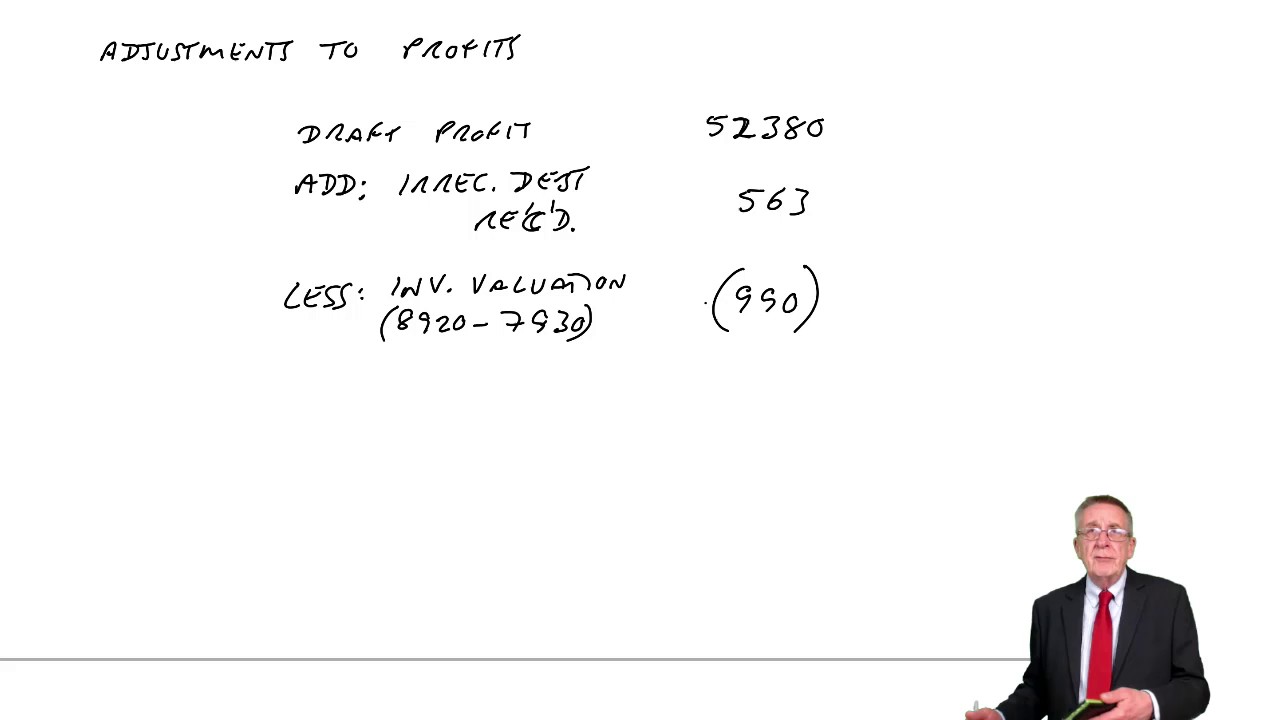 ADJUSTMENTS TO PROFITS
DRAFT PROFIT 52380
ADD: IRREC. DEBT 563
REC'D.
LESS: INV. VALUATION (990)
(8920 - 7930)